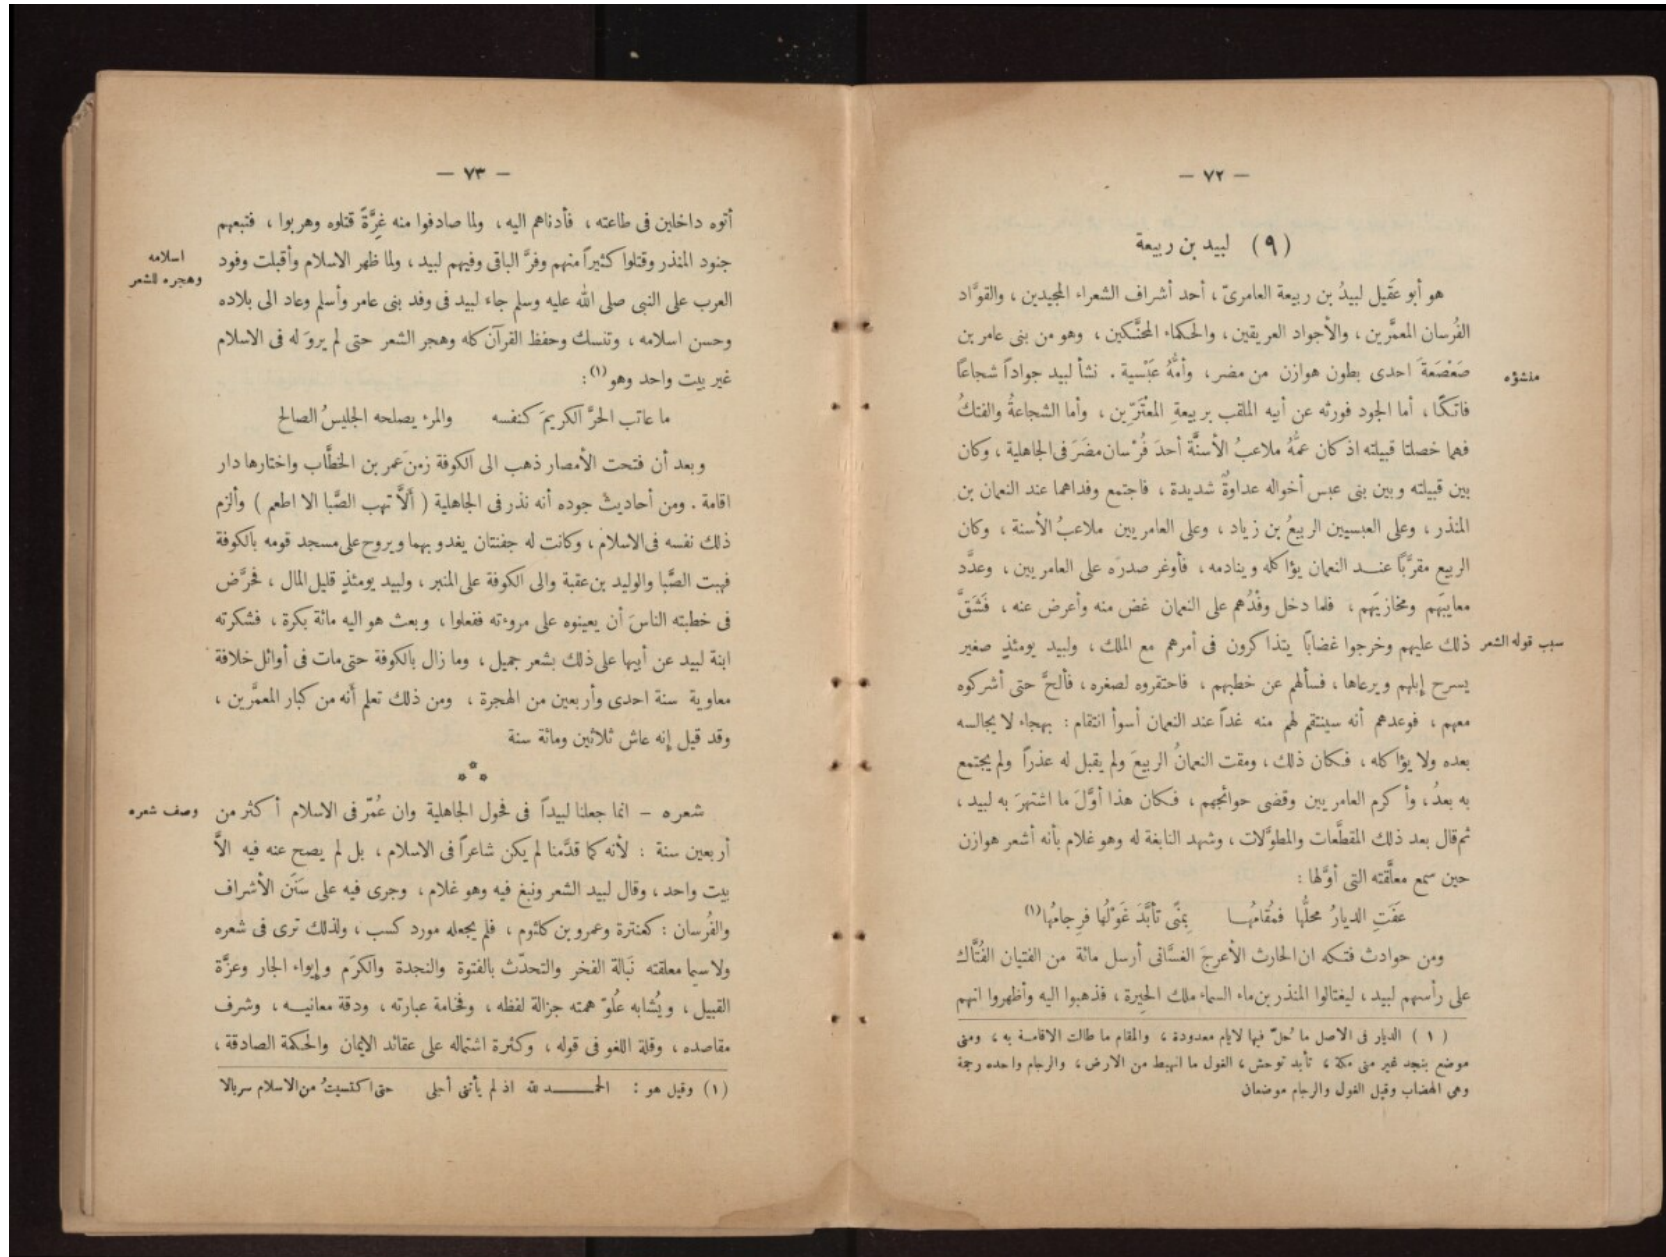 — ٧٢ —
(٩) لبيد بن ربيعة
هو أبو عَقَيل لبيدُ بن ربيعة العامرىّ ، أحد أشراف الشعراء المجيدين ، والقوَّاد
الفُرسان المعمَّرين ، والأجواد العريقين ، والحكماء المحنَّكين ، وهو من بنى عامر بن
منشؤه
صَعْصَعَةَ احدى بطون هوازن من مضر ، وأمُّهُ عَبْسية . نشأ لبيد جواداً شجاعاً
فاتكًا ، أما الجود فورثه عن أبيه الملقب بربيعةِ المعْتَرِّين ، وأما الشجاعةُ والفتكُ
فهما خصلتا قبيلته اذ كان عمُّهُ ملاعبُ الأسنَّة أحدَ فُرْسان مضَرَ فى الجاهلية ، وكان
بين قبيلته وبين بنى عبس أخواله عداوةٌ شديدة ، فاجتمع وفداهما عند النعمان بن
المنذر ، وعلى العبسيين الربيعُ بن زياد ، وعلى العامريين ملاعبُ الأسنة ، وكان
الربيع مقرَّبًا عنـد النعمان يؤاكله وينادمه ، فأوغر صدرَه على العامريين ، وعدَّد
معايبَهم ومخازيَهم ، فلما دخل وفْدُهم على النعمان غض منه وأعرض عنه ، فَشَقَّ
سبب قوله الشعر
ذلك عليهم وخرجوا غضابًا يتذاكرون فى أمرهم مع الملك ، ولبيد يومئذٍ صغير
يسرح إبلهم ويرعاها ، فسألهم عن خطبهم ، فاحتقروه لصغره ، فألحَّ حتى أشركوه
معهم ، فوعدهم أنه سينتقم لهم منه غداً عند النعمان أسوأ انتقام : بهجاء لا يجالسه
بعده ولا يؤاكله ، فكان ذلك ، ومقت النعمانُ الربيعَ ولم يقبل له عذراً ولم يجتمع
به بعدُ ، وأكرم العامريين وقضى حوائجهم ، فكان هذا أوَّلَ ما اشتهرَ به لبيد ،
ثم قال بعد ذلك المقطَّعات والمطوَّلات ، وشهد النابغة له وهو غلام بأنه أشعر هوازن
حين سمع معلَّقته التى أوَّلها :
عَفَتِ الديارُ محلُّها فمُقامُهـا     بِمنًى تأبَّدَ غَوْلُها فرِجامُها(١)
ومن حوادث فتكه ان الحارث الأعرجَ الغسَّانى أرسل مائة من الفتيان الفُتَّاك
على رأسهم لبيد ، ليغتالوا المنذر بن ماء السماء ملك الحِيرة ، فذهبوا اليه وأظهروا انهم
( ١ ) الديار فى الاصل ما حُلّ فيها لايام معدودة ، والمقام ما طالت الاقامـة به ، ومنى
موضع بنجد غير منى مكة ، تأبد توحش ، الغول ما انهبط من الارض ، والرجام واحده رجمة
وهى الهضاب وقيل الغول والرجام موضعان
— ٧٣ —
أتوه داخلين فى طاعته ، فأدناهم اليه ، ولما صادفوا منه غِرَّةً قتلوه وهربوا ، فتبعهم
اسلامه
وهجره للشعر
جنود المنذر وقتلوا كثيراً منهم وفرَّ الباقى وفيهم لبيد ، ولما ظهر الاسلام وأقبلت وفود
العرب على النبى صلى الله عليه وسلم جاء لبيد فى وفد بنى عامر وأسلم وعاد الى بلاده
وحسن اسلامه ، وتنسك وحفظ القرآن كله وهجر الشعر حتى لم يروَ له فى الاسلام
غير بيت واحد وهو(١) :
ما عاتب الحرَّ الكريمَ كنفسه     والمرء يصلحه الجليسُ الصالح
وبعد أن فتحت الأمصار ذهب الى الكوفة زمنَ عمر بن الخطَّاب واختارها دار
اقامة . ومن أحاديث جوده أنه نذر فى الجاهلية ( ألاَّ تهب الصَّبا الا اطعم ) وألزم
ذلك نفسه فى الاسلام ، وكانت له جفنتان يغدو بهما ويروح على مسجد قومه بالكوفة
فهبت الصَّبا والوليد بن عقبة والى الكوفة على المنبر ، ولبيد يومئذٍ قليل المال ، فحرَّض
فى خطبته الناسَ أن يعينوه على مروءته ففعلوا ، وبعث هو اليه مائة بكرة ، فشكرته
ابنة لبيد عن أبيها على ذلك بشعر جميل ، وما زال بالكوفة حتى مات فى أوائل خلافة
معاوية سنة احدى وأربعين من الهجرة ، ومن ذلك تعلم أنه من كبار المعمَّرين ،
وقد قيل إنه عاش ثلاثين ومائة سنة
* * *
وصف شعره
شعره – انما جعلنا لبيداً فى فحول الجاهلية وان عُمّر فى الاسلام أكثر من
أربعين سنة : لأنه كما قدَّمنا لم يكن شاعراً فى الاسلام ، بل لم يصح عنه فيه الاَّ
بيت واحد ، وقال لبيد الشعر ونبغ فيه وهو غلام ، وجرى فيه على سَنَن الأشراف
والفُرسان : كعنترة وعمرو بن كلثوم ، فلم يجعله مورد كسب ، ولذلك ترى فى شعره
ولا سيما معلقته نَبالة الفخر والتحدّث بالفتوة والنجدة والكرَم وإيواء الجار وعزَّة
القبيل ، ويُشابه عُلوّ همته جزالة لفظه ، وفخامة عبارته ، ودقة معانيـه ، وشرف
مقاصده ، وقلة اللغو فى قوله ، وكثرة اشتماله على عقائد الايمان والحكمة الصادقة ،
(١) وقيل هو :     الحمـــد لله اذ لم يأتنى أجلى     حتى اكتسيتُ من الاسلام سربالا